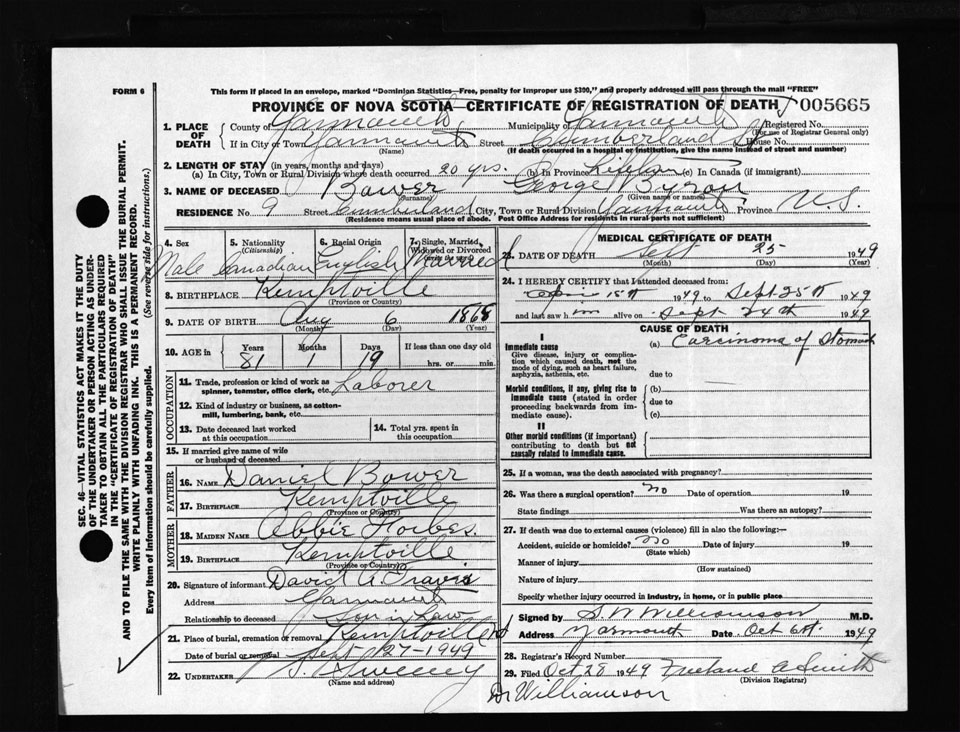 FORM 6
This form if placed in an envelope, marked "Dominion Statistics—Free, penalty for improper use $300," and properly addressed will pass through the mail "FREE"
PROVINCE OF NOVA SCOTIA—CERTIFICATE OF REGISTRATION OF DEATH 005665
1. PLACE OF DEATH
County of Yarmouth Municipality of Yarmouth Registered No.
(For use of Registrar General only)
If in City or Town Yarmouth Street Cumberland St House No.
(Name) (If death occurred in a hospital or institution, give the name instead of street and number)
2. LENGTH OF STAY (in years, months and days)
(a) In City, Town or Rural Division where death occurred 20 yrs. (b) In Province Lifetime (c) In Canada (if immigrant)
3. NAME OF DECEASED Bower George Byron
(Surname) (Given name or names)
RESIDENCE No. 9 Street Cumberland City, Town or Rural Division Yarmouth Province N.S.
(Residence means usual place of abode. Post Office Address for residents in rural parts not sufficient)
4. Sex 5. Nationality (Citizenship) 6. Racial Origin 7. Single, Married, Widowed or Divorced (write the word)
Male Canadian English Married
8. BIRTHPLACE Kemptville
(Province or Country)
9. DATE OF BIRTH Aug 6 1868
(Month) (Day) (Year)
10. AGE in Years Months Days If less than one day old
81 1 19 hrs. or min.
OCCUPATION
11. Trade, profession or kind of work as spinner, teamster, office clerk, etc. Laborer
12. Kind of industry or business, as cotton-mill, lumbering, bank, etc.
13. Date deceased last worked at this occupation
14. Total yrs. spent in this occupation
15. If married give name of wife or husband of deceased
FATHER
16. NAME Daniel Bower
17. BIRTHPLACE Kemptville
(Province or Country)
MOTHER
18. MAIDEN NAME Abbie Forbes.
19. BIRTHPLACE Kemptville
(Province or Country)
20. Signature of informant David A Travis
Address Yarmouth
Relationship to deceased Son in Law
21. Place of burial, cremation or removal Kemptville
Date of burial or removal Sept 27-1949
22. UNDERTAKER Sweeney
(Name and address)
MEDICAL CERTIFICATE OF DEATH
23. DATE OF DEATH Sept 25 1949
(Month) (Day) (Year)
24. I HEREBY CERTIFY that I attended deceased from:
15th 1949 to Sept. 25th 1949
and last saw him alive on Sept 24th 1949
CAUSE OF DEATH
I
Immediate cause (a) Carcinoma of Stomach
Give disease, injury, or complication which caused death, not the mode of dying, such as heart failure, asphyxia, asthenia, etc.
due to
Morbid conditions, if any, giving rise to immediate cause (stated in order proceeding backwards from immediate cause).
(b)
due to
(c)
II
Other morbid conditions (if important) contributing to death but not causally related to immediate cause.
25. If a woman, was the death associated with pregnancy?
26. Was there a surgical operation? no Date of operation 19
State findings Was there an autopsy?
27. If death was due to external causes (violence) fill in also the following:—
Accident, suicide or homicide? no Date of injury 19
(State which)
Manner of injury
(How sustained)
Nature of injury
Specify whether injury occurred in industry, in home, or in public place
Signed by S W Williamson M.D.
Address Yarmouth Date Oct 6th 1949
28. Registrar's Record Number
29. Filed Oct 28 1949 Freeland A Smith
(Division Registrar)
Dr Williamson
SEC. 46—VITAL STATISTICS ACT MAKES IT THE DUTY
OF THE UNDERTAKER OR PERSON ACTING AS UNDER-
TAKER TO OBTAIN ALL THE PARTICULARS REQUIRED
IN THE "CERTIFICATE OF REGISTRATION OF DEATH"
AND TO FILE THE SAME WITH THE DIVISION REGISTRAR WHO SHALL ISSUE THE BURIAL PERMIT.
WRITE PLAINLY WITH UNFADING INK. THIS IS A PERMANENT RECORD.
Every item of information should be carefully supplied. (See reverse side for instructions.)